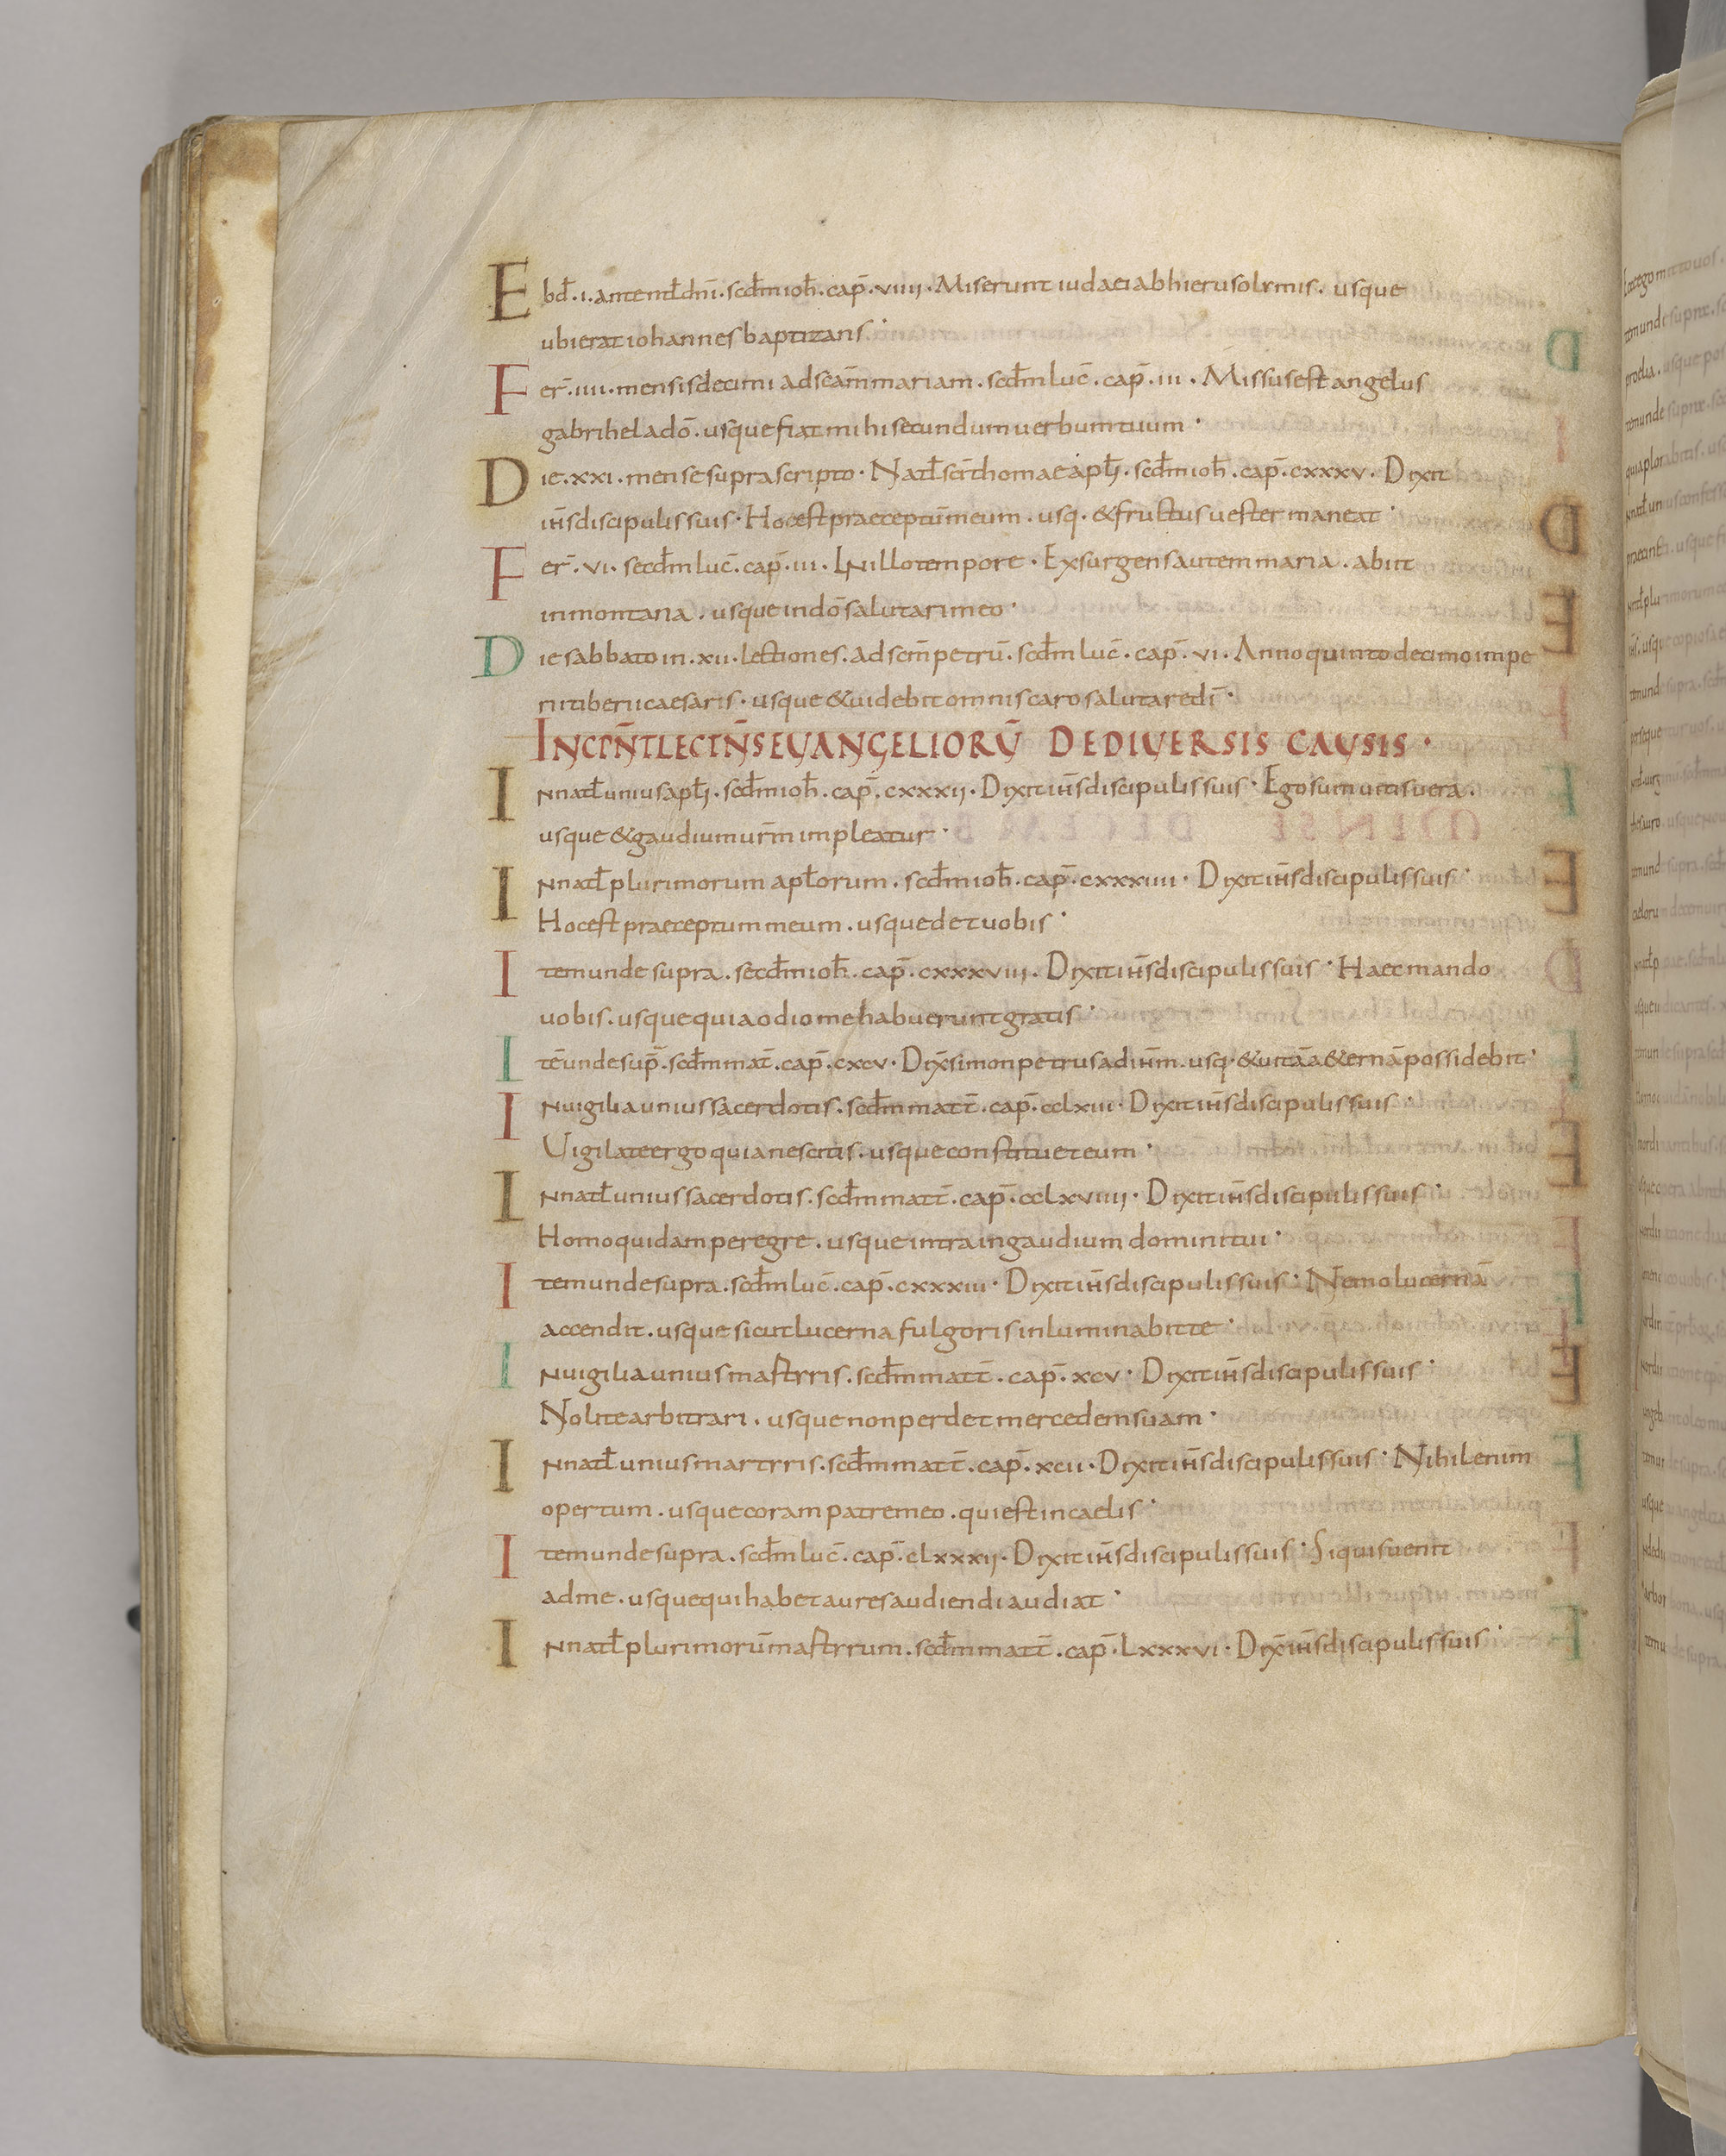 Ebd̄. i. antenatl̄dn̄i. scd̄m ioh̄. cap̄. viiii. Miserunt iudaei ab hierusolymis. usque
ubi erat iohannes baptizans.
Fer̄. iiii. mensis decimi ad scām mariam. scd̄m luc̄. cap̄. iii. Missus est angelus
gabrihel a dō. usque fiat mihi secundum uerbum tuum.
Die. xxi. mense suprascripto. Natl̄ sc̄i thomae apl̄i. scd̄m ioh̄. cap̄. cxxxv. Dixit
ih̄s discipulis suis. Hoc est praeceptū meum. usq. & fructus uester maneat.
Fer̄. vi. secd̄m luc̄. cap̄. iii. In illo tempore. Exsurgens autem maria. abiit
in montana. usque in dō salutari meo.
Die sabbato in. xii. lectiones. ad scm̄ petrū. scd̄m luc̄. cap̄. vi. Anno quinto decimo impe
rii tiberii caesaris. usque & uidebit omnis caro salutare dī.
INCIPN̄T LECTN̄S EUANGELIORŪ DE DIUERSIS CAUSIS.
In natl̄ unius apl̄i. scd̄m ioh̄. cap̄. cxxxii. Dixit ih̄s discipulis suis. Ego sum uitis uera.
usque & gaudium ur̄m impleatur.
In natl̄ plurimorum apl̄orum. scd̄m ioh̄. cap̄. cxxxiiii. Dixit ih̄s discipulis suis.
Hoc est praeceptum meum. usque det uobis.
Item unde supra. secd̄m ioh̄. cap̄. cxxxviii. Dixit ih̄s discipulis suis. Haec mando
uobis. usque quia odio me habuerunt gratis.
Itē unde sup̄. scd̄m mat̄. cap̄. cxcv. Dix̄ simon petrus ad ih̄m. usq. & uitā a&ernā possidebit.
In uigilia unius sacerdotis. scd̄m matt̄. cap̄. cclxiii. Dixit ih̄s discipulis suis.
Uigilate ergo quia nescitis. usque constituet eum.
In natl̄ unius sacerdotis. scd̄m matt̄. cap̄. cclxviiii. Dixit ih̄s discipulis suis.
Homo quidam peregre. usque intra in gaudium domini tui.
Item unde supra. scd̄m luc̄. cap̄. cxxxiii. Dixit ih̄s discipulis suis. Nemo lucernā
accendit. usque sicut lucerna fulgoris inluminabit te.
In uigilia unius mastyris. scd̄m matt̄. cap̄. xcv. Dixit ih̄s discipulis suis.
Nolite arbitrari. usque non perdet mercedem suam.
In natl̄ unius martyris. scd̄m matt̄. cap̄. xcii. Dixit ih̄s discipulis suis. Nihil enim
opertum. usque coram patre meo. qui est in caelis.
Item unde supra. scd̄m luc̄. cap̄. clxxxii. Dixit ih̄s discipulis suis. Si quis uenit
ad me. usque qui habet aures audiendi audiat.
In natl̄ plurimorū mastyrum. scd̄m matt̄. cap̄. Lxxxvi. Dix̄ ih̄s discipulis suis.